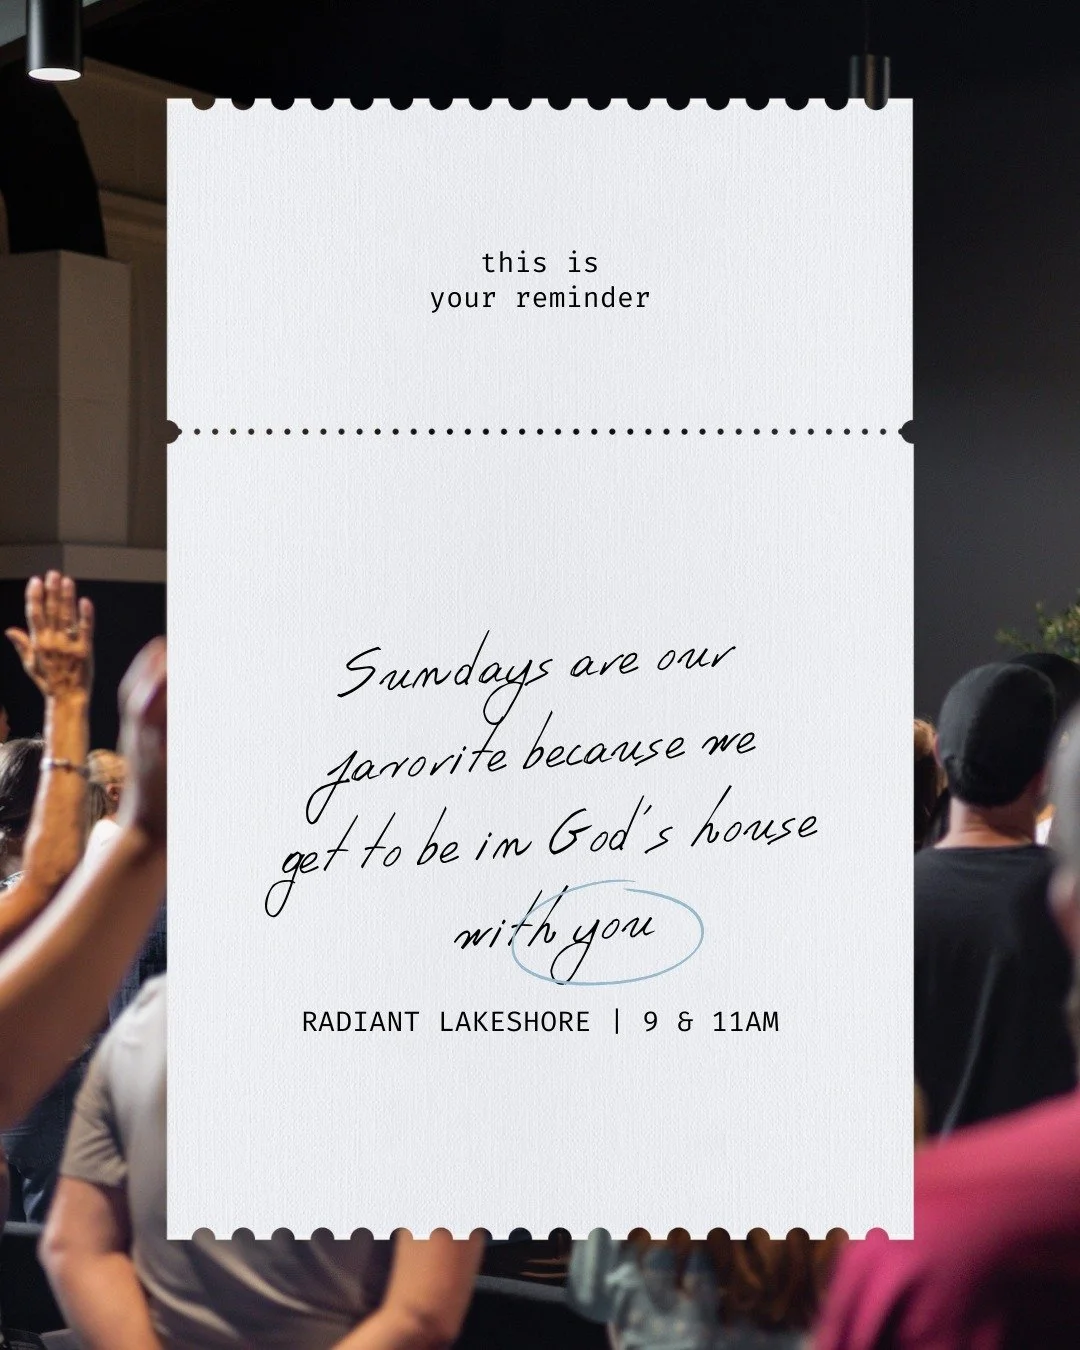 this is
your reminder
Sundays are our
favorite because we
get to be in God's house
with you
RADIANT LAKESHORE | 9 & 11AM